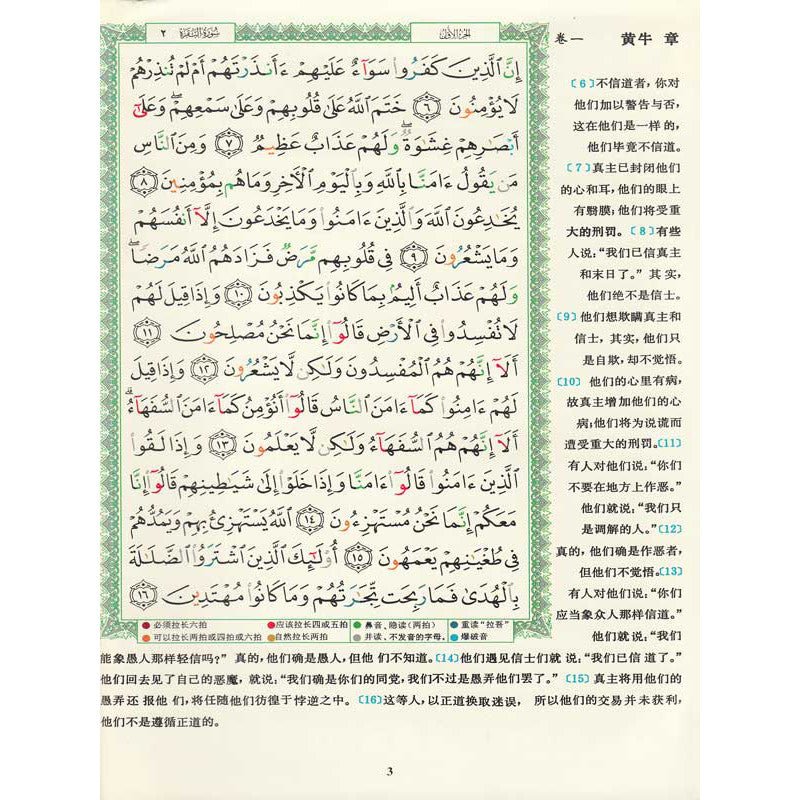 سورة البقرة ٢
الجزء الأول
卷一 黄牛 章
إِنَّ ٱلَّذِينَ كَفَرُوا۟ سَوَآءٌ عَلَيْهِمْ ءَأَنذَرْتَهُمْ أَمْ لَمْ تُنذِرْهُمْ
لَا يُؤْمِنُونَ ٦ خَتَمَ ٱللَّهُ عَلَىٰ قُلُوبِهِمْ وَعَلَىٰ سَمْعِهِمْ ۖ وَعَلَىٰٓ
أَبْصَـٰرِهِمْ غِشَـٰوَةٌ ۖ وَلَهُمْ عَذَابٌ عَظِيمٌ ٧ وَمِنَ ٱلنَّاسِ
مَن يَقُولُ ءَامَنَّا بِٱللَّهِ وَبِٱلْيَوْمِ ٱلْـَٔاخِرِ وَمَا هُم بِمُؤْمِنِينَ ٨
يُخَـٰدِعُونَ ٱللَّهَ وَٱلَّذِينَ ءَامَنُوا۟ وَمَا يَخْدَعُونَ إِلَّآ أَنفُسَهُمْ
وَمَا يَشْعُرُونَ ٩ فِى قُلُوبِهِم مَّرَضٌ فَزَادَهُمُ ٱللَّهُ مَرَضًا ۖ
وَلَهُمْ عَذَابٌ أَلِيمٌۢ بِمَا كَانُوا۟ يَكْذِبُونَ ١٠ وَإِذَا قِيلَ لَهُمْ
لَا تُفْسِدُوا۟ فِى ٱلْأَرْضِ قَالُوٓا۟ إِنَّمَا نَحْنُ مُصْلِحُونَ ١١
أَلَآ إِنَّهُمْ هُمُ ٱلْمُفْسِدُونَ وَلَـٰكِن لَّا يَشْعُرُونَ ١٢ وَإِذَا قِيلَ
لَهُمْ ءَامِنُوا۟ كَمَآ ءَامَنَ ٱلنَّاسُ قَالُوٓا۟ أَنُؤْمِنُ كَمَآ ءَامَنَ ٱلسُّفَهَآءُ ۗ
أَلَآ إِنَّهُمْ هُمُ ٱلسُّفَهَآءُ وَلَـٰكِن لَّا يَعْلَمُونَ ١٣ وَإِذَا لَقُوا۟
ٱلَّذِينَ ءَامَنُوا۟ قَالُوٓا۟ ءَامَنَّا وَإِذَا خَلَوْا۟ إِلَىٰ شَيَـٰطِينِهِمْ قَالُوٓا۟ إِنَّا
مَعَكُمْ إِنَّمَا نَحْنُ مُسْتَهْزِءُونَ ١٤ ٱللَّهُ يَسْتَهْزِئُ بِهِمْ وَيَمُدُّهُمْ
فِى طُغْيَـٰنِهِمْ يَعْمَهُونَ ١٥ أُو۟لَـٰٓئِكَ ٱلَّذِينَ ٱشْتَرَوُا۟ ٱلضَّلَـٰلَةَ
بِٱلْهُدَىٰ فَمَا رَبِحَت تِّجَـٰرَتُهُمْ وَمَا كَانُوا۟ مُهْتَدِينَ ١٦
● 必须拉长六拍 ● 应该拉长四或五拍 ● 鼻音、隐读（两拍） ● 重读“拉吾”
● 可以拉长两拍或四拍或六拍 ● 自然拉长两拍 ● 并读、不发音的字母。 ● 爆破音
〔6〕不信道者，你对
他们加以警告与否，
这在他们是一样的，
他们毕竟不信道。
〔7〕真主已封闭他们
的心和耳，他们的眼上
有翳膜；他们将受重
大的刑罚。〔8〕有些
人说：“我们已信真主
和末日了。”其实，
他们绝不是信士。
〔9〕他们想欺瞒真主和
信士，其实，他们只
是自欺，却不觉悟。
〔10〕他们的心里有病，
故真主增加他们的心
病；他们将为说谎而
遭受重大的刑罚。〔11〕
有人对他们说：“你们
不要在地方上作恶。”
他们就说：“我们只
是调解的人。”〔12〕
真的，他们确是作恶者，
但他们不觉悟。〔13〕
有人对他们说：“你们
应当象众人那样信道。”
他们就说：“我们
能象愚人那样轻信吗？”真的，他们确是愚人，但他们不知道。〔14〕他们遇见信士们就说：“我们已信道了。”
他们回去见了自己的恶魔，就说：“我们确是你们的同党，我们不过是愚弄他们罢了。”〔15〕真主将用他们的
愚弄还报他们，将任随他们彷徨于悖逆之中。〔16〕这等人，以正道换取迷误，所以他们的交易并未获利，
他们不是遵循正道的。
3